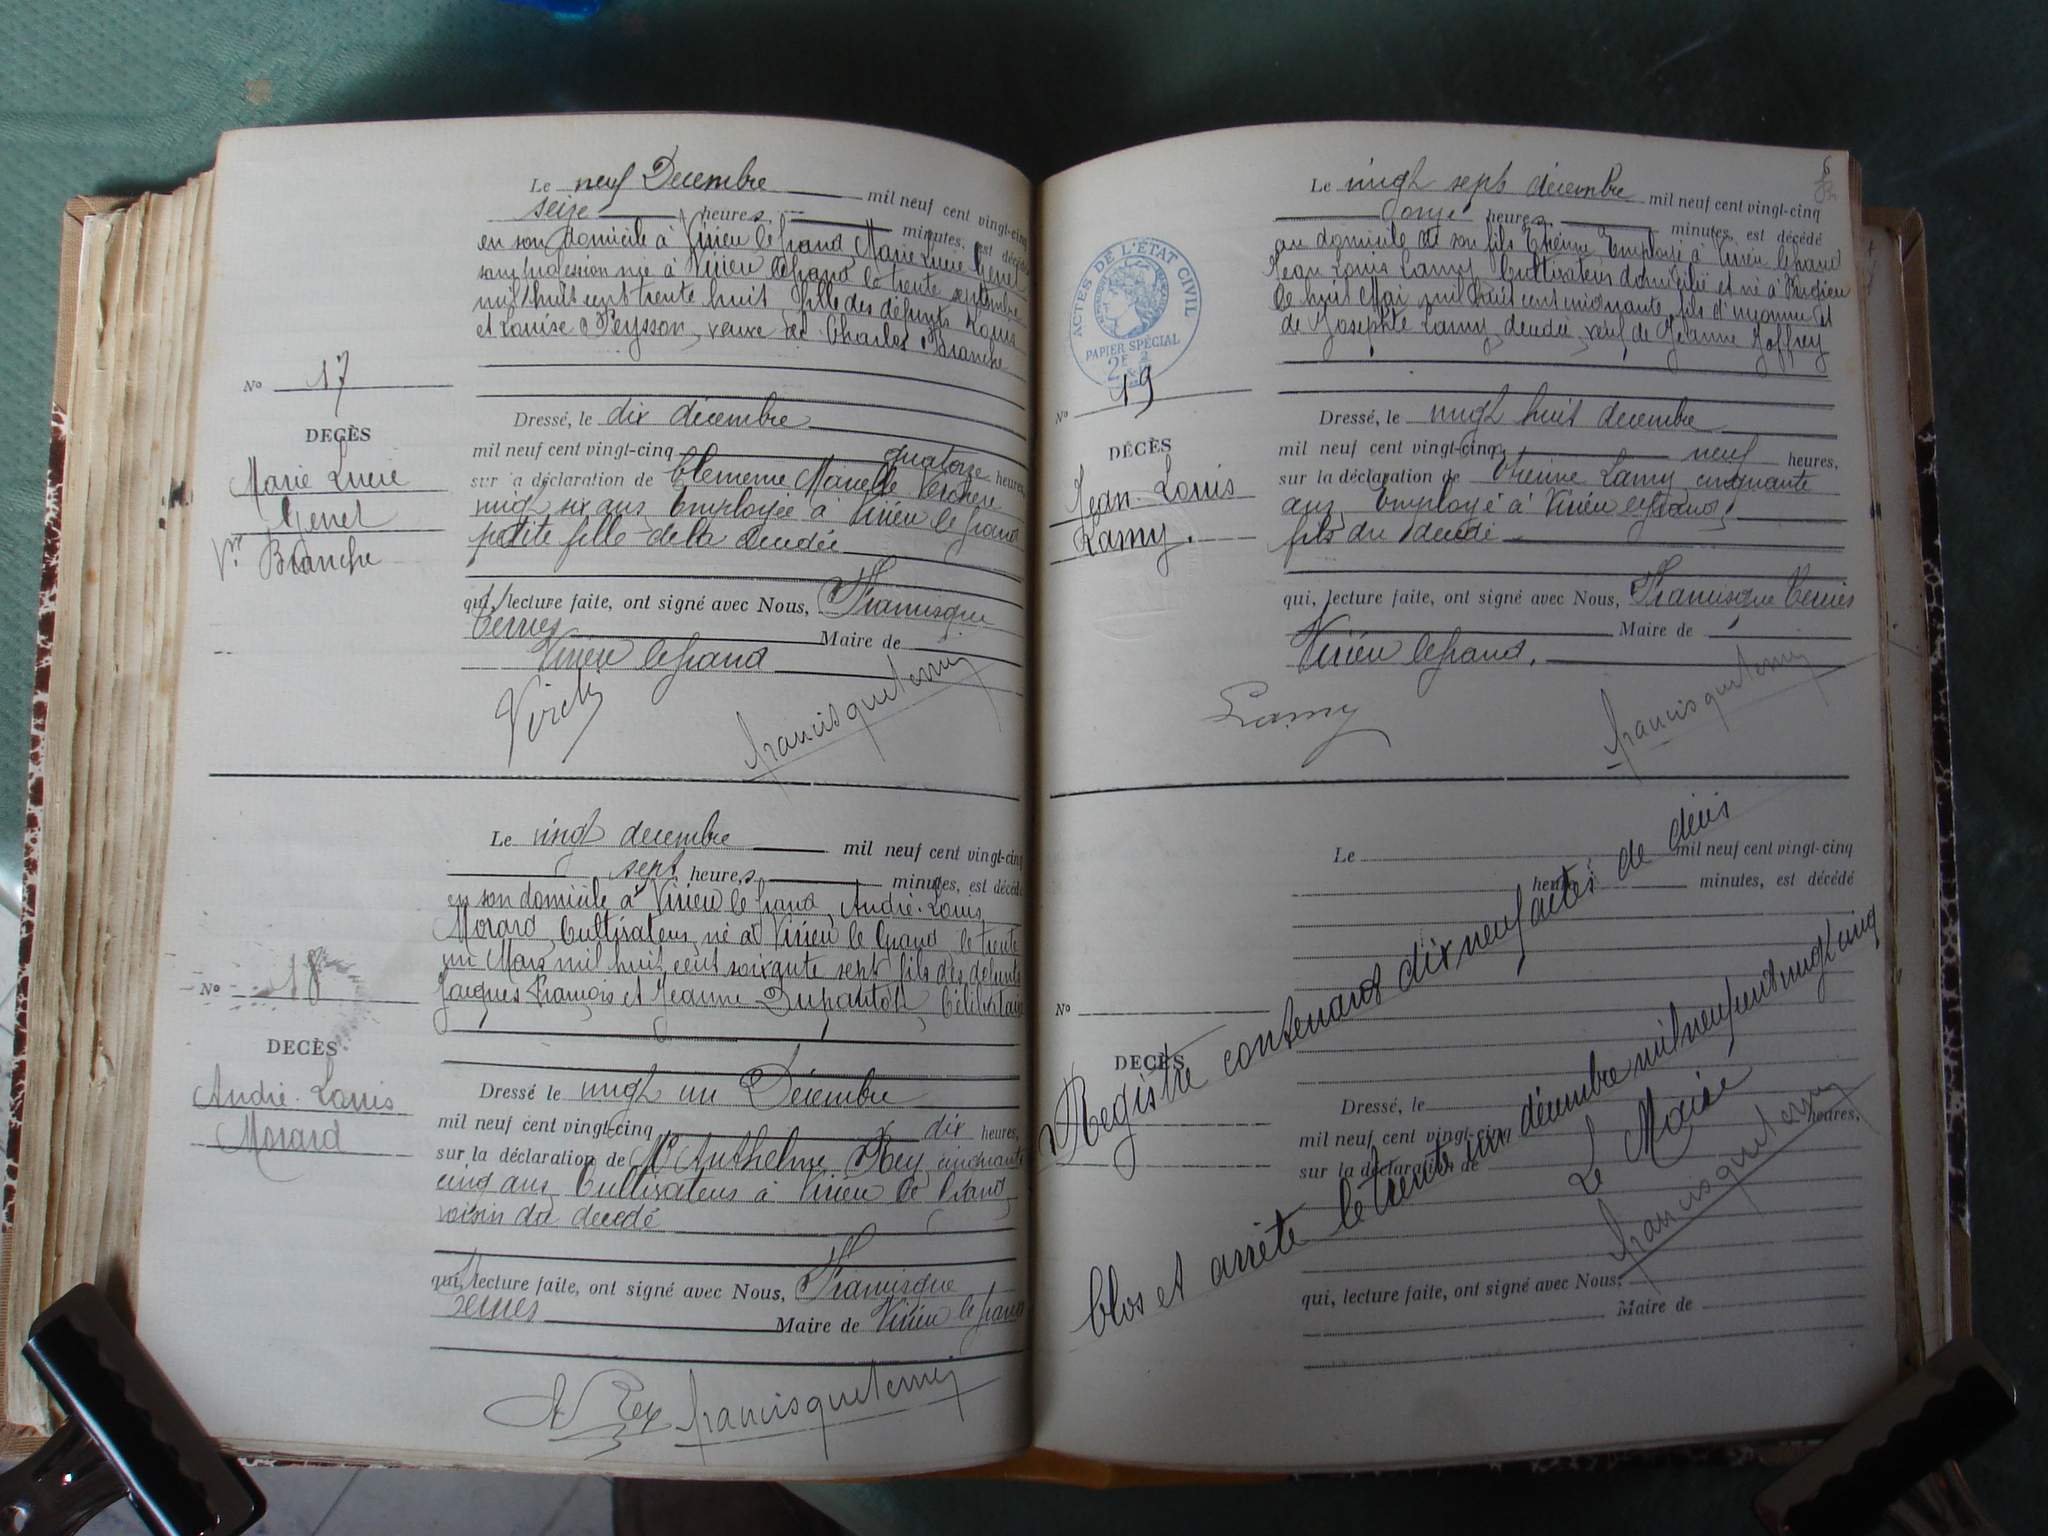 Le neuf Decembre mil neuf cent vingt-cinq
seize heures, minutes, est décédée
en son domicile à Virieu le Grand, Marie Lucie Genet
sans profession née à Virieu le Grand le trente septembre
mil huit cent trente huit fille des défunts Louis
et Louise Peysson, veuve de Charles Branche
No 17
DECÈS
Marie Lucie
Genet
Vve Branche
Dressé, le dix décembre
mil neuf cent vingt-cinq quatorze heures,
sur la déclaration de Clémence Marcelle
vingt six ans Employée à Virieu le Grand
petite fille de la décédée
qui, lecture faite, ont signé avec Nous, Francisque
Ternes Maire de
Virieu le Grand
francisque
Le vingt decembre mil neuf cent vingt-cinq
sept heures minutes, est décédé
en son domicile à Virieu le Grand, André-Louis
Morard, Cultivateur, né à Virieu le Grand le trente
un Mars mil huit cent soixante sept fils des défunts
Jacques François et Jeanne Dupanlou, Célibataire
No 18
DECÈS
André-Louis
Morard
Dressé le vingt un Décembre
mil neuf cent vingt-cinq dix heures,
sur la déclaration de Mr Anthelme Rey cinquante
cinq ans, Cultivateur à Virieu le Grand,
voisin du decedé
qui, lecture faite, ont signé avec Nous, Francisque
Ternes Maire de Virieu le Grand
A Rey francisque
6
Le vingt sept décembre mil neuf cent vingt-cinq
onze heures, minutes, est décédé
au domicile de son fils Etienne, Employé à Virieu le Grand
Jean Louis Lamy, Cultivateur domicilié et né à
le huit Mai mil huit cent cinquante, fils d'inconnu et
de Josephte Lamy, décédée, veuf de Jeanne Joffrey
ACTES DE L'ÉTAT CIVIL
PAPIER SPÉCIAL
No 19
DÉCÈS
Jean-Louis
Lamy.
Dressé, le vingt huit decembre
mil neuf cent vingt-cinq neuf heures,
sur la déclaration de Etienne Lamy, cinquante
ans, Employé à Virieu le Grand,
fils du décédé
qui, lecture faite, ont signé avec Nous, Francisque Ternes
Maire de
Virieu le Grand.
Lamy francisque
Le mil neuf cent vingt-cinq
heure minutes, est décédé
No
DECÈS
Dressé, le
mil neuf cent vingt-cinq heures,
sur la déclaration de
qui, lecture faite, ont signé avec Nous,
Maire de
Registre contenant dix neuf actes de décès
Clos et arrêté le trente un décembre mil neuf cent vingt cinq
Le Maire
francisque